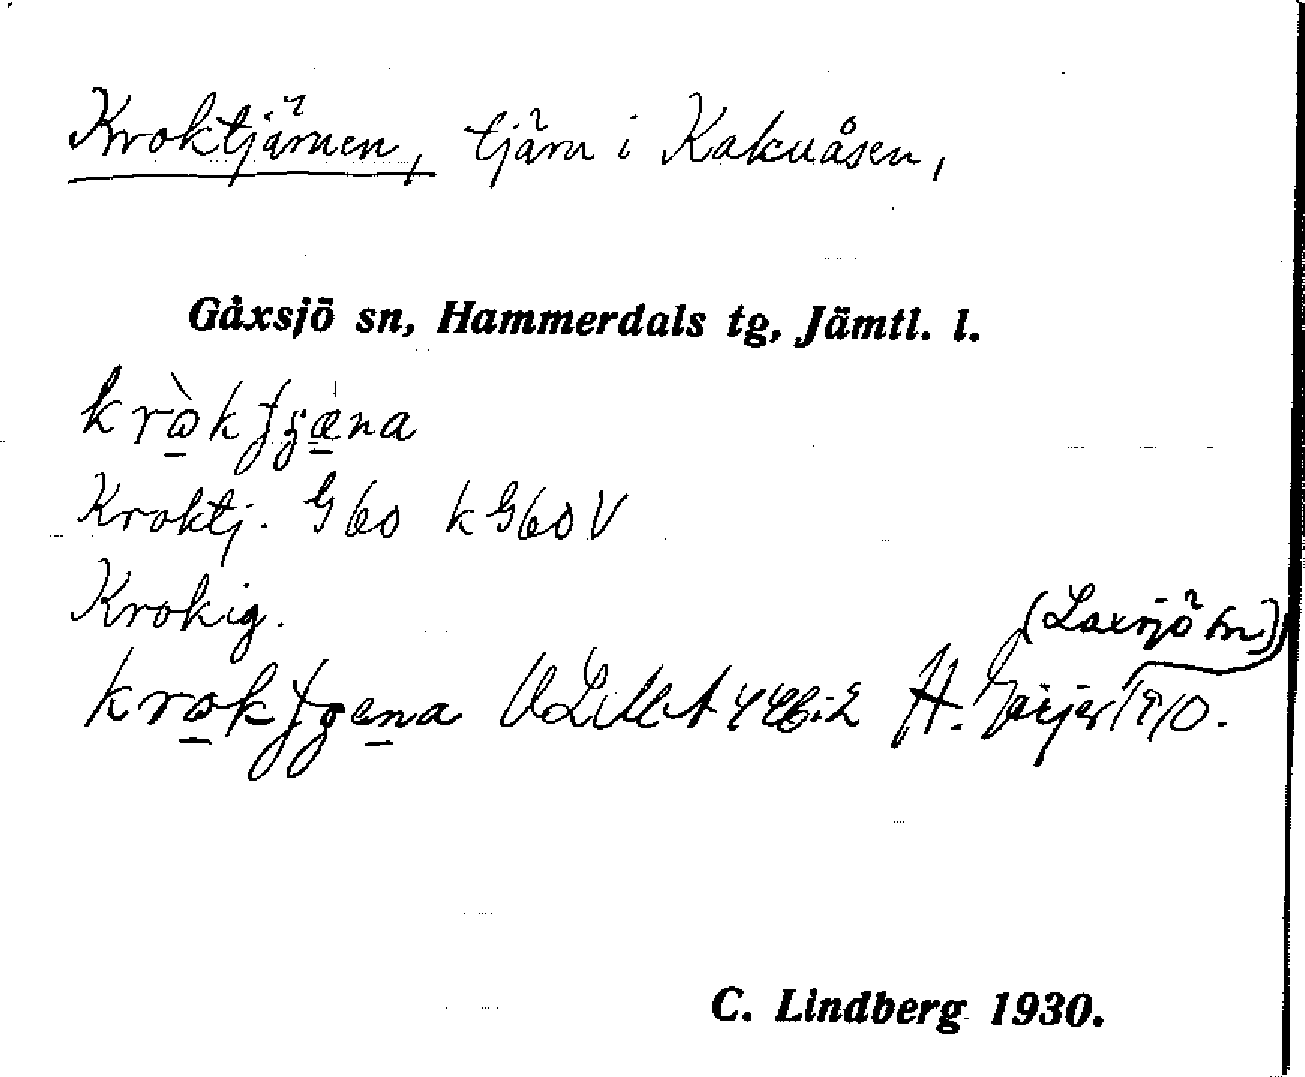 Kroktjärnen, tjärn i Kakuåsen,
Gåxsjö sn, Hammerdals tg, Jämtl. l.
Kroktj. G 60 k G 60 V
Krokig.
(Laxsjö sn)
H. Geijer 1910.
C. Lindberg 1930.